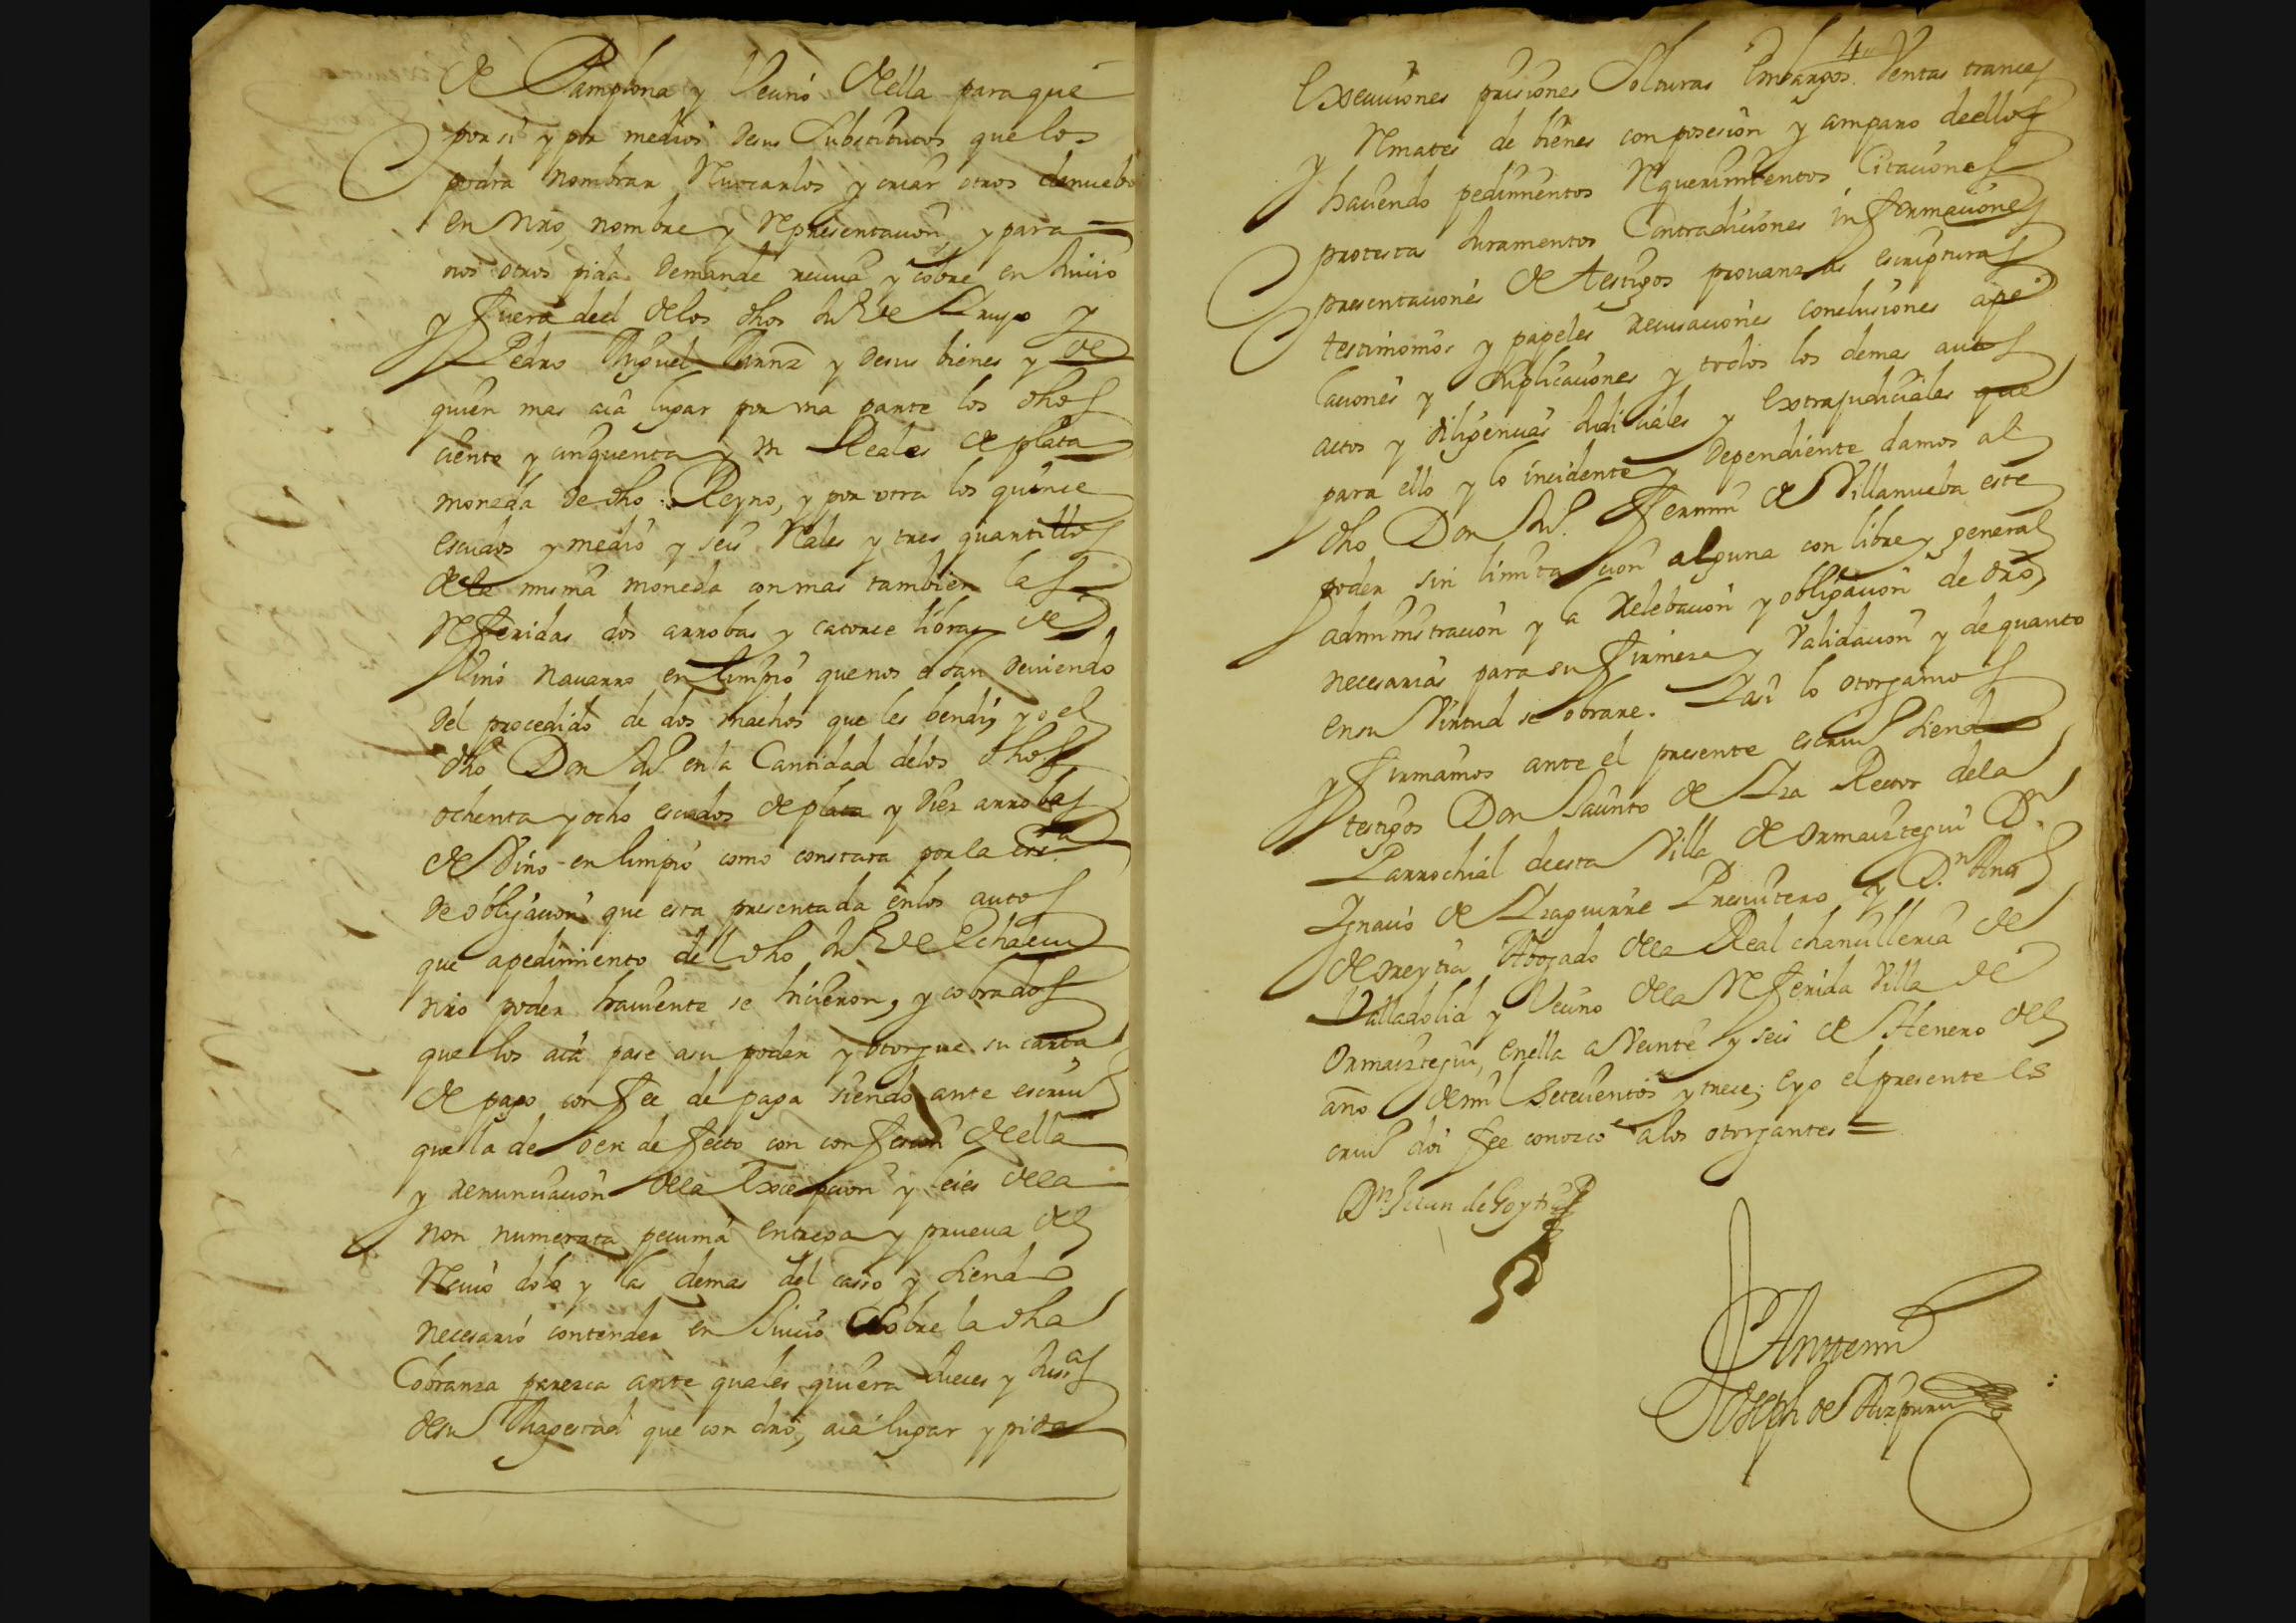 de Pamplona y Vecino della para que
por si y por medios de sus Substitutos que los
podra nombrar Revocarlos y criar otros de nuebo
en nro nombre y Representacion, y para
nos otros pida Demande reciva y cobre en Juicio
y fuera del de los dhos Ju.º de
Pedro Miguel y de sus bienes y de
quien mas aia lugar por una parte los dhos
ciento y cinquenta y un Reales de plata
moneda de dho Reyno, y por otra los quince
escudos y medio y seis Rales y tres quartillos
de la misma moneda con mas tambien las
Referidas dos arrobas y catorce libras de
Vino navarro en limpio que nos estan deviendo
del procedido de dos machos que les bendi, yo el
dho Don Ju.º en la Cantidad de los dhos
ochenta y ocho escudos de plata y diez arrobas
de Vino en limpio como constara por la escra
de obligacion que esta presentada en los autos
que a pedimiento del dho Ju.º de
nro poder haviente se hicieron, y cobrados
que los aia pase a su poder y otorgue su carta
de pago con fee de paga siendo ante escriu.º
que la de o en defecto con confesion de ella
y renunciacion de la Excepcion y leies de la
non numerata pecunia entrega y prueva del
Reciuo dolo y las demas del casso y siendo
necesario contender en Juicio sobre la dha
Cobranza parezca ante quales quiera Jueces y Jusas
de su Magestad que con dro, aia lugar y pida
4
Execuciones prisiones Solturas Embargos Ventas trances
y Remates de bienes con posesion y amparo de ellos
haciendo pedimientos Requerimientos Citaciones
protestas Juramentos Contradiciones informaciones
presentaciones de testigos provanzas escripturas
testimonios y papeles recusaciones conclusiones ape
laciones y Suplicaciones y todos los demas autos
actos y diligencias Judiciales y Extrajudiciales que
para ello y lo incidente y Dependiente damos al
dho Don Ju.º Fermin de Villanueba este
poder sin limitacion alguna con libre y general
administracion y la Relebacion y obligacion de dro,
necesarias para su firmeza y Validacion y de quanto
en su Virtud se obrare. Y asi lo otorgamos
y firmamos ante el presente escriu.º siendo
testigos Don Jacinto de Rector de la
Parrochial de esta Villa de Ormaiztegui D.n
Ignacio de Yzaguirre Presuitero y D.n Ana
de oreytia Abogado de la Real chancilleria de
Valladolid y Vecino de la Referida Villa de
Ormaiztegui, en ella a Veinte y seis de Henero del
año de mil Setecientos y trece; e yo el presente es
criu.º doi fee conozco a los otorgantes =
D.n Juan de Goytia
Ante mi
Joseph de Aizpuru